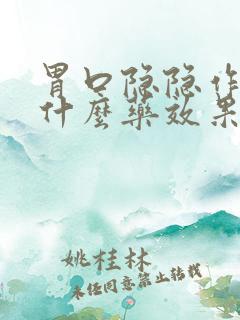 胃口隐隐作
什麽药效果
姚桂林
未经同意禁止转载